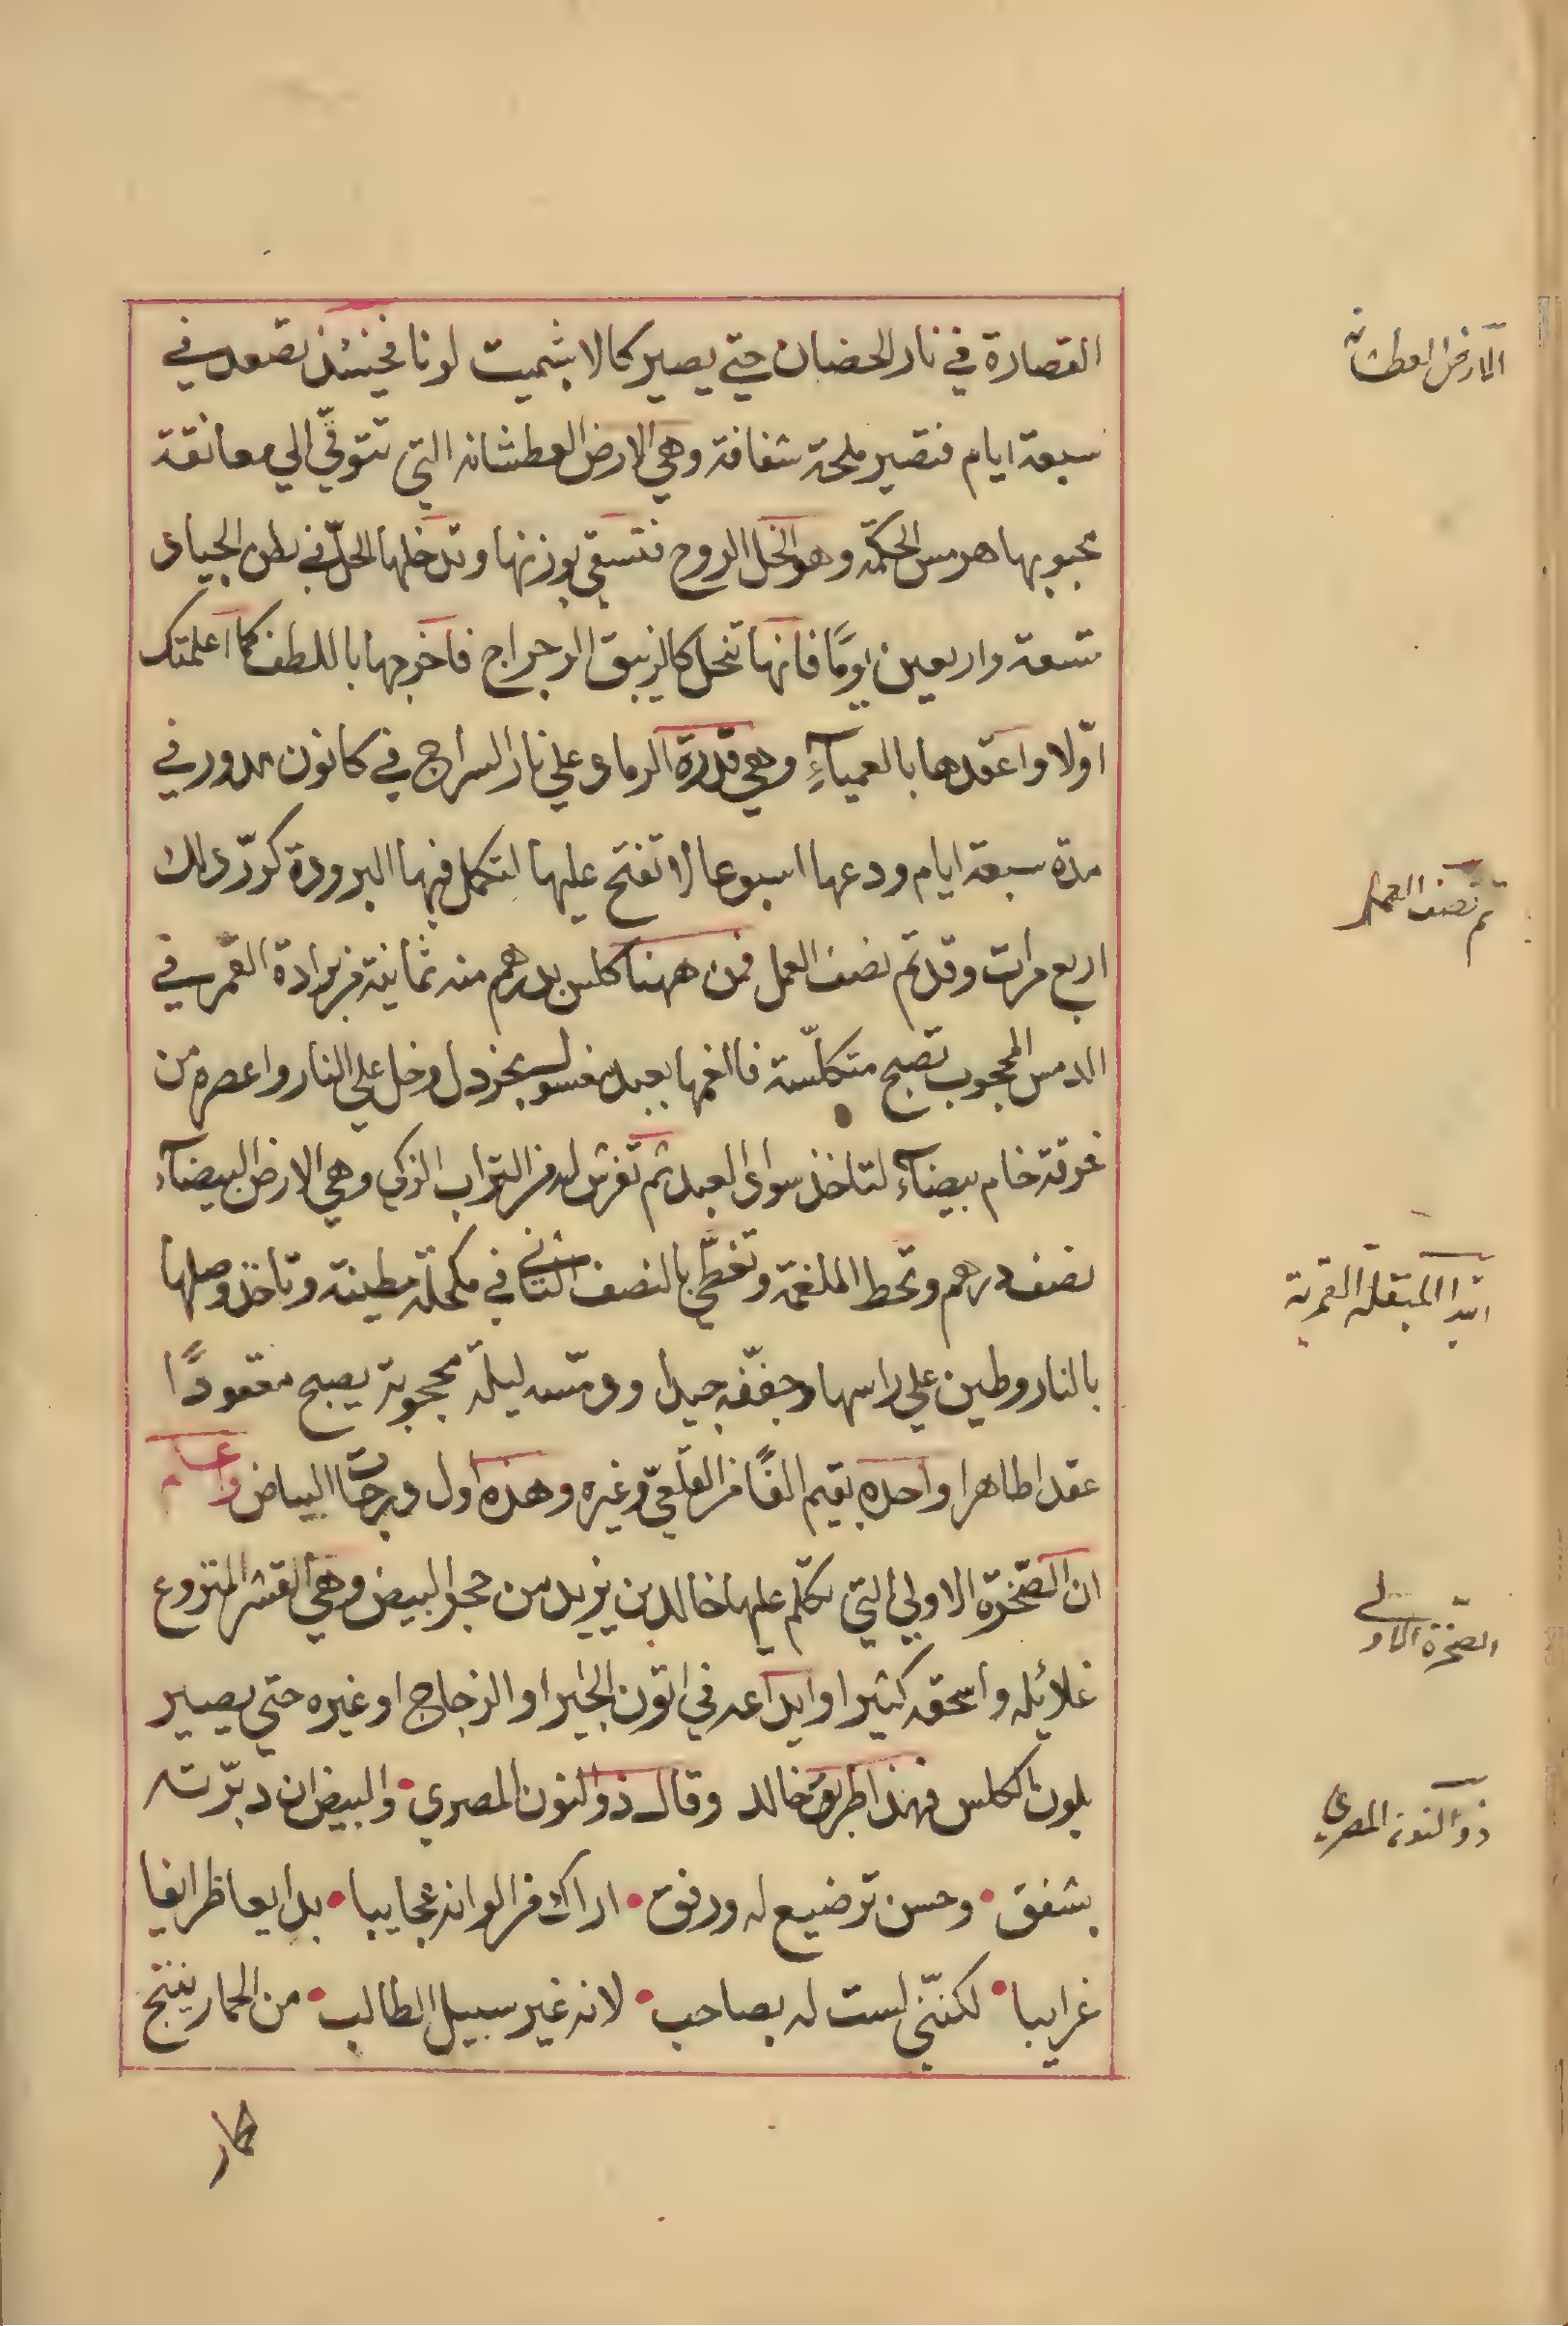 القصارة في نار الحضان حتي يصير كمالا بشميت لونا فحينئذ تصعد في
سبعة ايام فتصير ملحة شفافة وهي الارض العطشانه التي تتوقي الي معانقة
محبوبها هرمس الحكمة وهو الخل الروح فتسقي بوزنها وتدخلها الحل في بطن الجياد
تسعة واربعين يومًا فانها تنحل كالزيبق الرجراج فاخرجها باللطف كما اعلمتك
اوّلا واعقدها بالعمياءِ وهي قدرة الرماد علي نار السراج في كانون مدور في
مدة سبعة ايام ودعها اسبوعا لا تفتح عليها لتكمل فيها البرودة كرّر ذلك
اربع مرات وقد تم نصف العمل فمن ههنا كلس بدرهم منه ثمانية من برادة القمر في
الدمس المحجوب تصبح متكلّسة فاالغمها بعبد مغسول بخردل وخل علي النار واعصره من
خرقة خام بيضاء لتاخذ سواد العبد ثم تفرش له من التراب الزكي وهي الارض البيضاء
نصف درهم وتحط الملغمة وتغطّي بالنصف الثاني في مكحلة مطينة وتاخذ وصلها
بالنار وطين علي راسها وجففه جيدا ودمّسه ليلة محجوبة يصبح معقودًا
عقدا طاهرا واحده يقيم الفًا من القلعيّ وغيره وهذه اول درجات البياض واعلم
ان الصّخرة الاولي التي تكلّم عليها خالد بن يزيد من حجر البيض وهي القشر المنزوع
غلائله واسحقه كثيرا وايداعه في اتون الجير او الزجاج او غيره حتي يصير
بلون الكلس فهذا طريق خالد وقال ذو النون المصري • والبيض ان دبّرته
بشفق • وحسن ترضيع له ورفق • اراك من الوانه عجايبا • بدايعا ظرايفا
غرايبا • لكنّني لست له بصاحب • لانه غير سبيل الطالب • من الحمار ينتج
حمار
الارض العطشانه
تم نصف العمل
القمرية
الصّخرة الاولي
ذو النون المصري